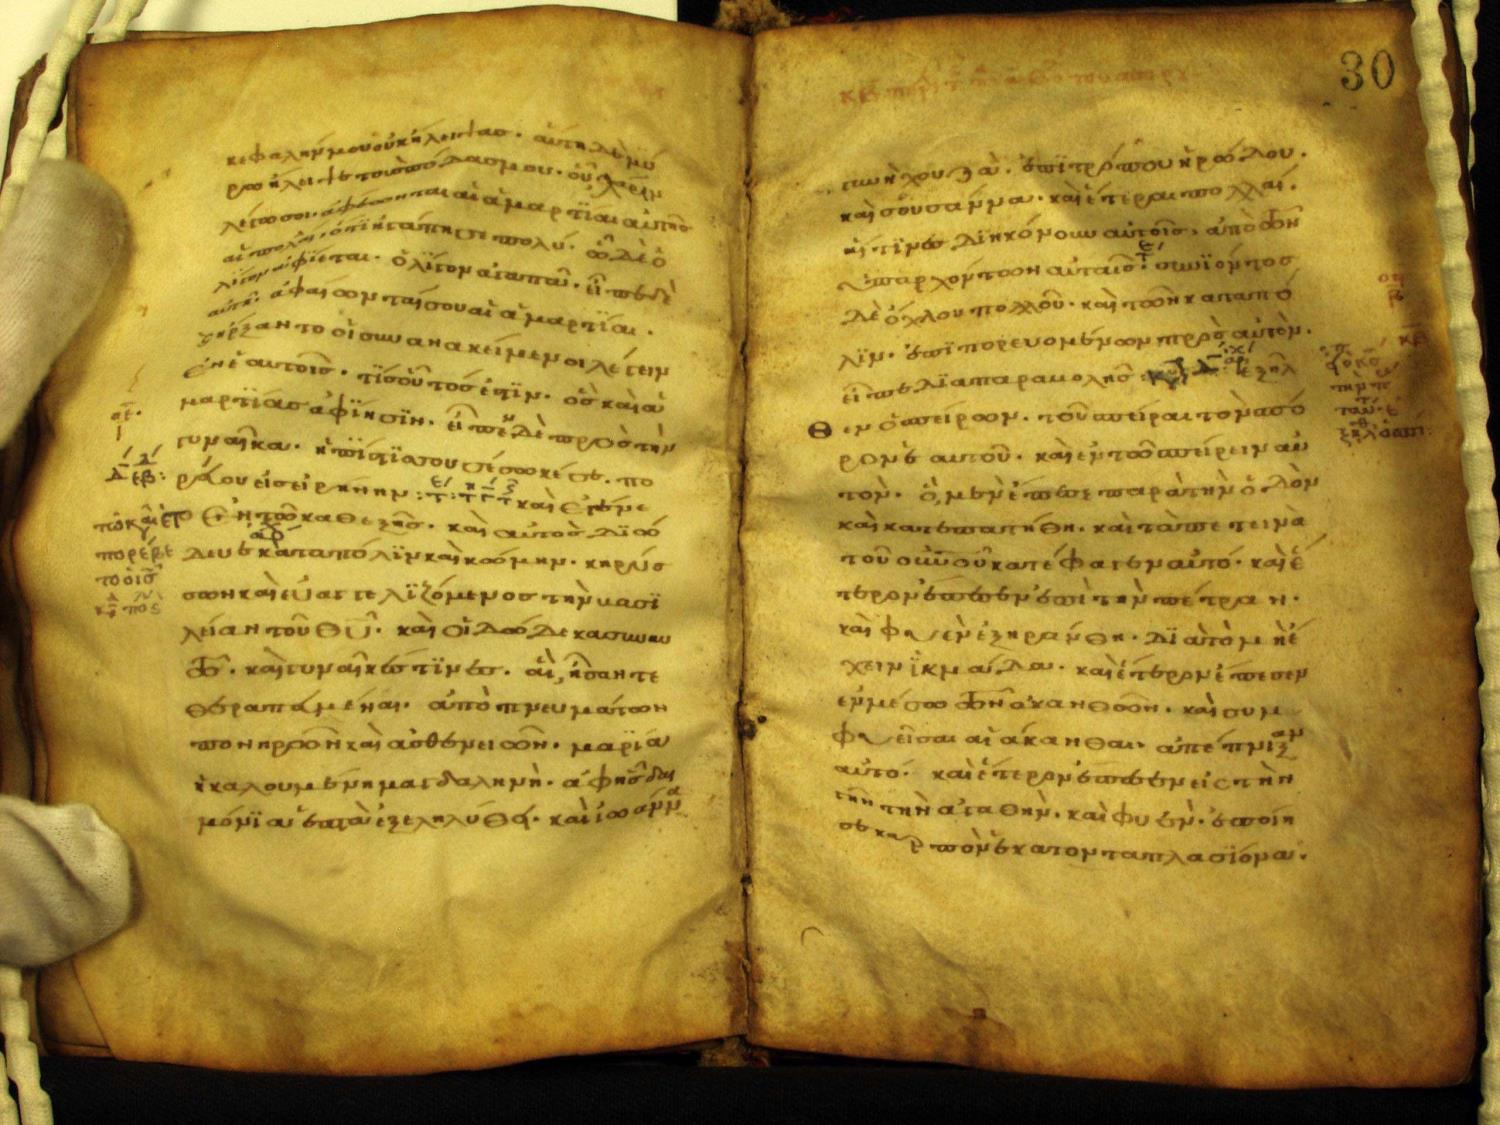 κεφαλήν μου οὐκ ἤλειψας· αὕτη δὲ μύ
ρω ἤλειψε τοὺς πόδας μου· οὗ χάριν
λέγω σοι· ἀφέωνται αἱ ἁμαρτίαι αὐτῆς
αἱ πολλαὶ· ὅτι ἠγάπησε πολύ· ὧ δὲ ὀ
λίγον ἀφίεται· ὀλίγον ἀγαπᾶ· εἶπε δὲ
αὐτῆ· ἀφέωνταί σου αἱ ἁμαρτίαι·
ἤρξαντο οἱ συνανακείμενοι λέγειν
ἐν ἑαυτοῖς· τίς οὗτός ἐστιν· ὃς καὶ ἁ
μαρτίας ἀφίησιν· εἶπεν δὲ πρὸς τὴν
γυναῖκα· ἡ πίστις σου σέσωκέ σε· πο
ρεύου εἰς εἰρήνην: καὶ ἐγένε
το ἐν τῶ καθεξῆς· καὶ αὐτὸς διώ
δευε κατὰ πόλιν καὶ κώμην· κηρύσ
σων καὶ εὐαγγελιζόμενος τὴν βασι
λείαν τοῦ θυ· καὶ οἱ δώδεκα σὺν αυ
τῶ· καὶ γυναῖκές τινες· αἳ ἦσαν τε
θεραπευμέναι· ἀπὸ πνευμάτων
πονηρῶν καὶ ἀσθενειῶν· μαρία
ἡ καλουμένη μαγδαληνὴ· ἀφ' ἧς δαι
μόνια ἑπτὰ ἐξεληλύθει· καὶ ἰωάννα
30
γυνὴ χουζᾶ· ἐπιτρόπου ἡρώδου·
καὶ σουσάννα· καὶ ἕτεραι πολλαί·
αἵτινες διηκόνουν αὐτοῖς, ἀπὸ τῶν
ὑπαρχόντων αὐταῖς: συνιόντος
δὲ ὄχλου πολλοῦ· καὶ τῶν κατὰ πό
λιν· ἐπιπορευομένων πρὸς αὐτὸν·
εἶπε διὰ παραβολῆς· ἐξῆλ
Θεν ὁ σπείρων· τοῦ σπεῖραι τὸν σπό
ρον αὐτοῦ· καὶ ἐν τῶ σπείρειν αὐ
τὸν· ὃ μὲν ἔπεσε παρὰ τὴν ὁδὸν
καὶ κατεπατήθη· καὶ τὰ πετεινὰ
τοῦ οὐνοῦ κατέφαγεν αὐτό· καὶ ἕ
τερον ἔπεσεν ἐπὶ τὴν πέτραν·
καὶ φυὲν ἐξηράνθη· διὰ τὸ μὴ ἔ
χειν ἰκμάδα· καὶ ἕτερον ἔπεσεν
ἐν μέσω τῶν ἀκανθῶν· καὶ συμ
φυεῖσαι αἱ ἄκανθαι· ἀπέπνιξαν
αὐτό· καὶ ἕτερον ἔπεσεν εἰς τὴν
γῆν τὴν ἀγαθὴν· καὶ φυὲν· ἐποίη
σε καρπὸν ἑκατονταπλασίονα·